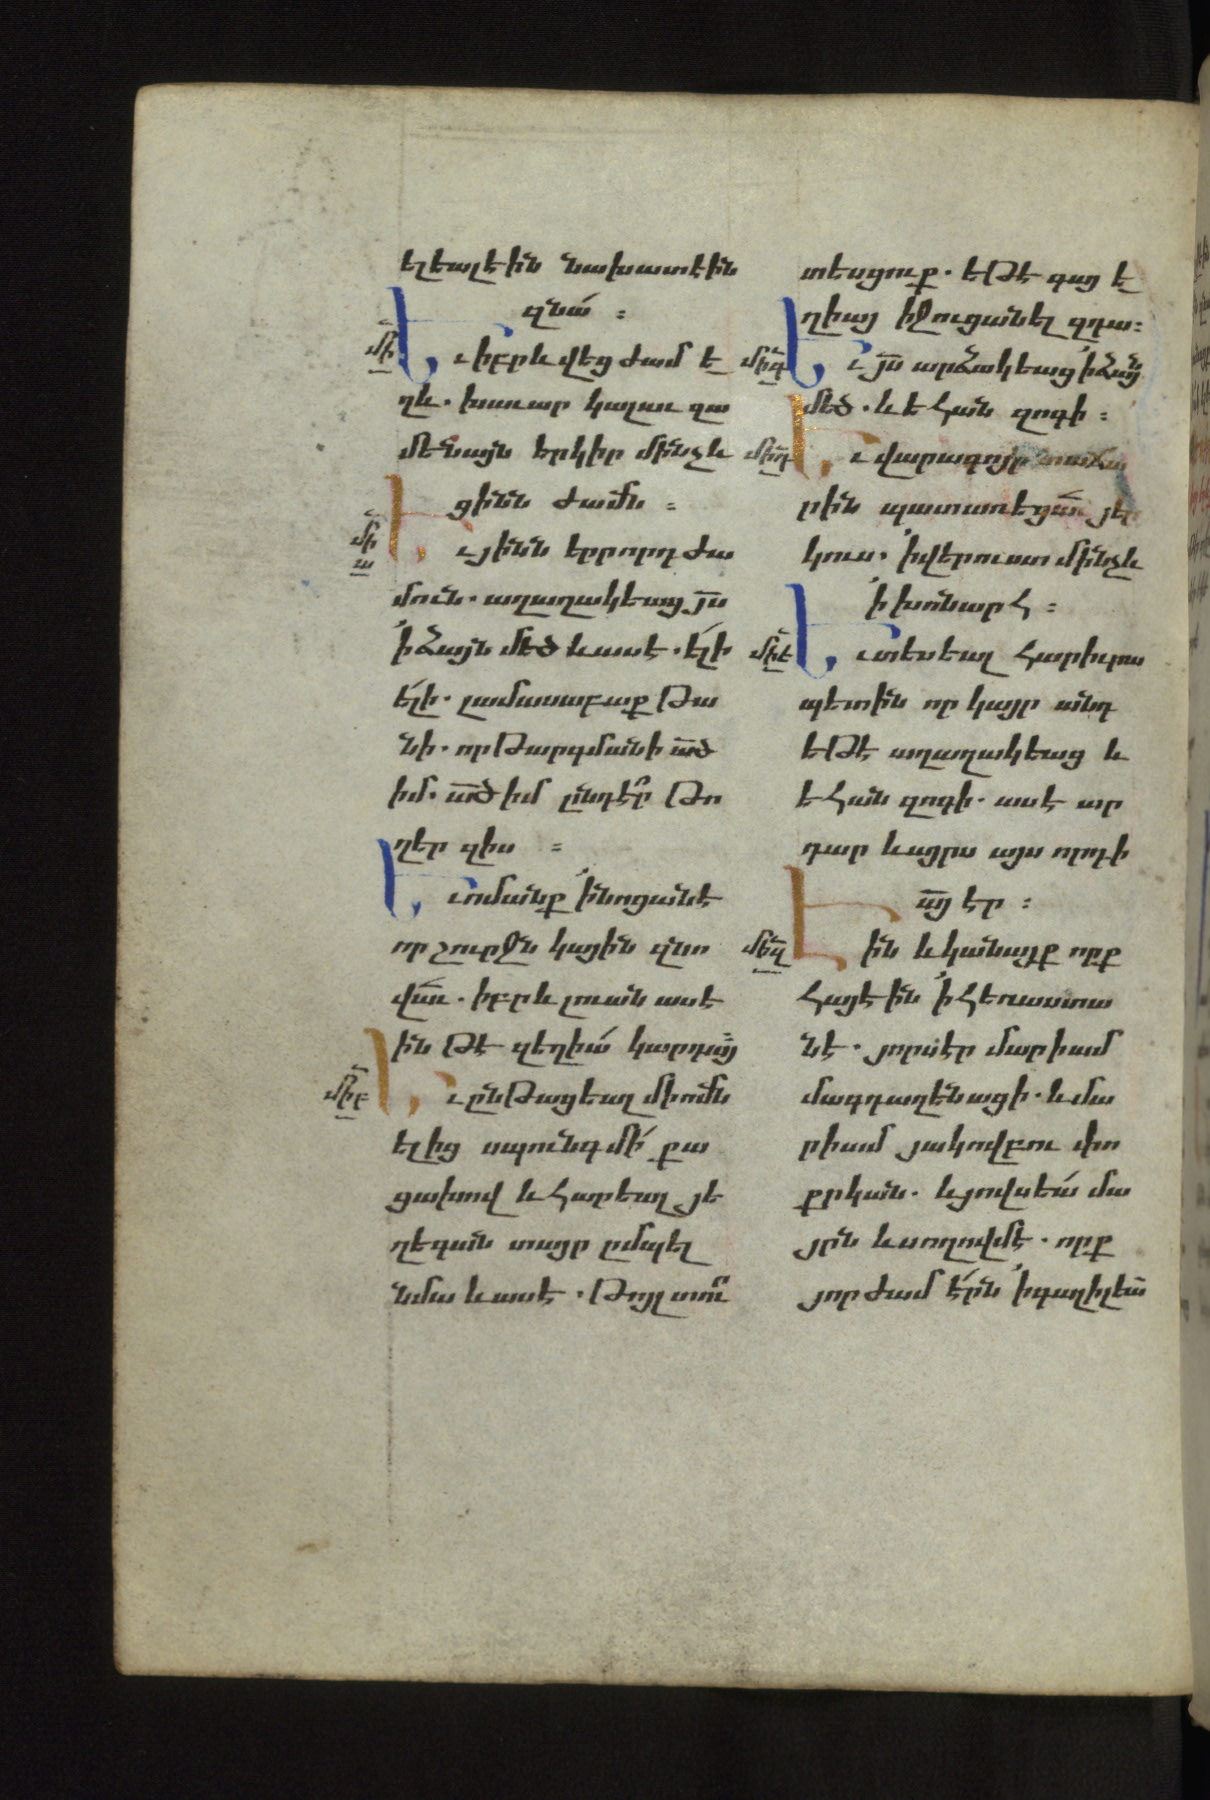 ելեալէին նախատէին
զնա՛ ։
մի̄
Եւ իբրև վեց ժամ ե
ղև . խաւար կալաւ զա
մենայն երկիր մինչև
ցինն ժամն ։
մի̄
ա
Եւ յինն երրորդ ժա
մուն . աղաղակեաց յ̄ս
՛ի ձայն մեծ և ասէ . է՛լի
է՛լի . լամասաբաք թա
նի . որ թարգմանի ա̄ծ
իմ . ա̄ծ իմ ընդէ՞ր թո
ղեր զիս ։
Եւ ոմանք ՛ինոցանէ
որ շուրջն կային զնո
վա̄ւ . իբրև լուան ասէ
ին թէ զեղիա՛ կարդա̄յ
մի̄բ
Եւ ընթացեալ միոմն
ելից սպունգ մի՛ քա
ցախով և հարեալ յե
ղեգան տայր ըմպել
նմա և ասէ . թոյլ տո՞ւ
տեսցուք . եթէ գայ ե
ղիայ իջուցանել զդա ։
մի̄գ
Եւ յ̄ս արձակեաց ՛իձա̄յն
մեծ . և ե հան զոգի ։
մի̄դ
Եւ վարագոյր տաճա
րին պատառեցա̄ւ յեր
կուս . ՛իվերուստ մինչև
՛ի խոնարհ ։
մի̄ե
Եւ տեսեալ հարիւրա
պետին որ կայր անդ
եթէ աղաղակեաց և
ե հան զոգի . ասէ ար
դար և այրս այս որդի
ա̄յ էր ։
մի̄զ
Էին և կանայք որք
հայէին ՛ի հեռաստա
նէ . յորս էր մարիամ
մագդաղէնացի . և մա
րիամ յակովբու փո
քրկան . և յովսեա՛ մա
յրն և սողովմէ . որք
յորժամ է՛րն ՛իգաղիլեա̄